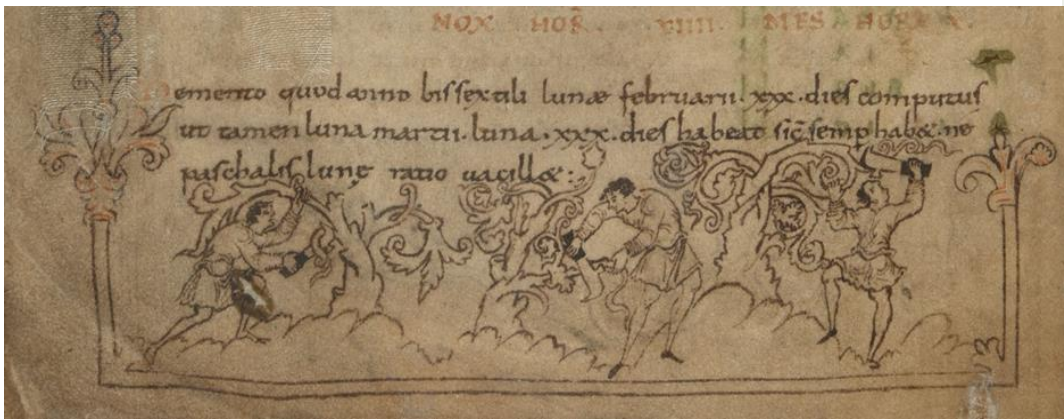 NOX HOR̄. XVIII. DIES HORE X.
Memento quod anno bissextili lunæ februarii .xxx. dies computus
ut tamen luna martii luna .xxx. dies habeat sic̄ semp habet. ne
paschalis lunę ratio vacillet: